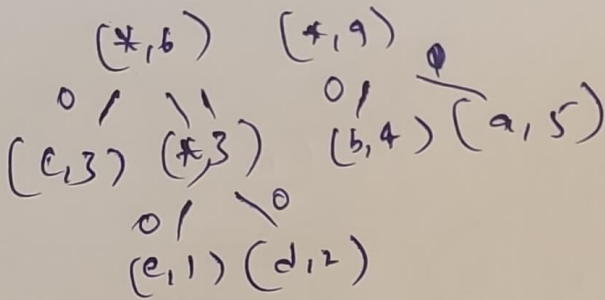 (*,6) (*,9)
0 0
(c,3) (*,3) (b,4) (a,5)
0 0
(e,1) (d,2)